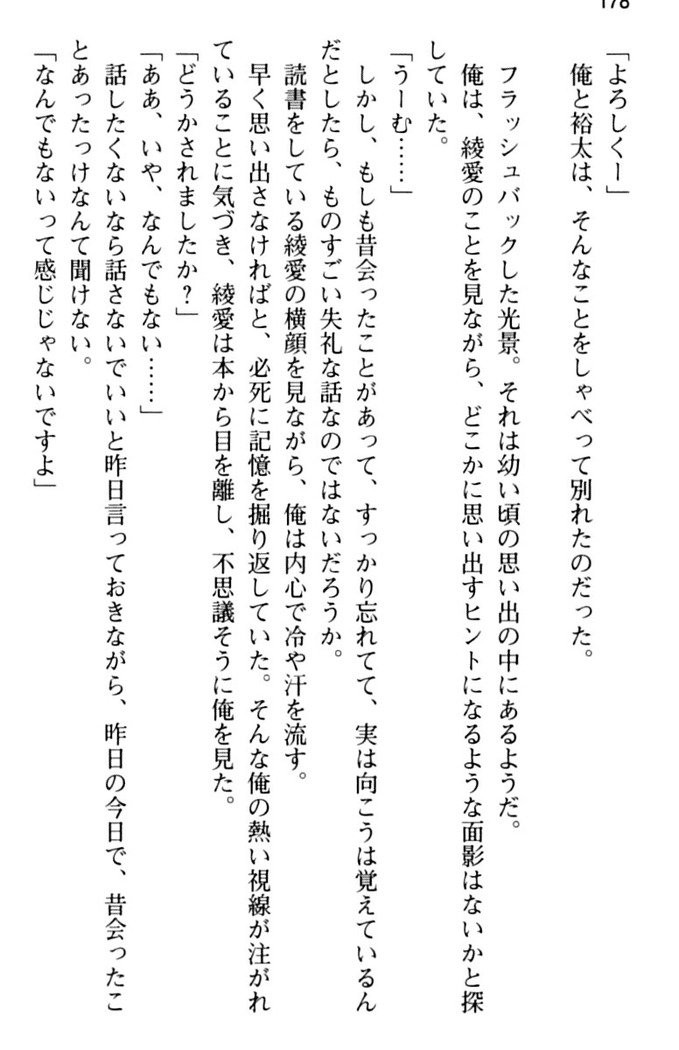 178
「よろしくー」
俺と裕太は、そんなことをしゃべって別れたのだった。
フラッシュバックした光景。それは幼い頃の思い出の中にあるようだ。
俺は、綾愛のことを見ながら、どこかに思い出すヒントになるような面影はないかと探
していた。
「うーむ……」
しかし、もしも昔会ったことがあって、すっかり忘れてて、実は向こうは覚えているん
だとしたら、ものすごい失礼な話なのではないだろうか。
読書をしている綾愛の横顔を見ながら、俺は内心で冷や汗を流す。
早く思い出さなければと、必死に記憶を掘り返していた。そんな俺の熱い視線が注がれ
ていることに気づき、綾愛は本から目を離し、不思議そうに俺を見た。
「どうかされましたか？」
「ああ、いや、なんでもない……」
話したくないなら話さないでいいと昨日言っておきながら、昨日の今日で、昔会ったこ
とあったっけなんて聞けない。
「なんでもないって感じじゃないですよ」